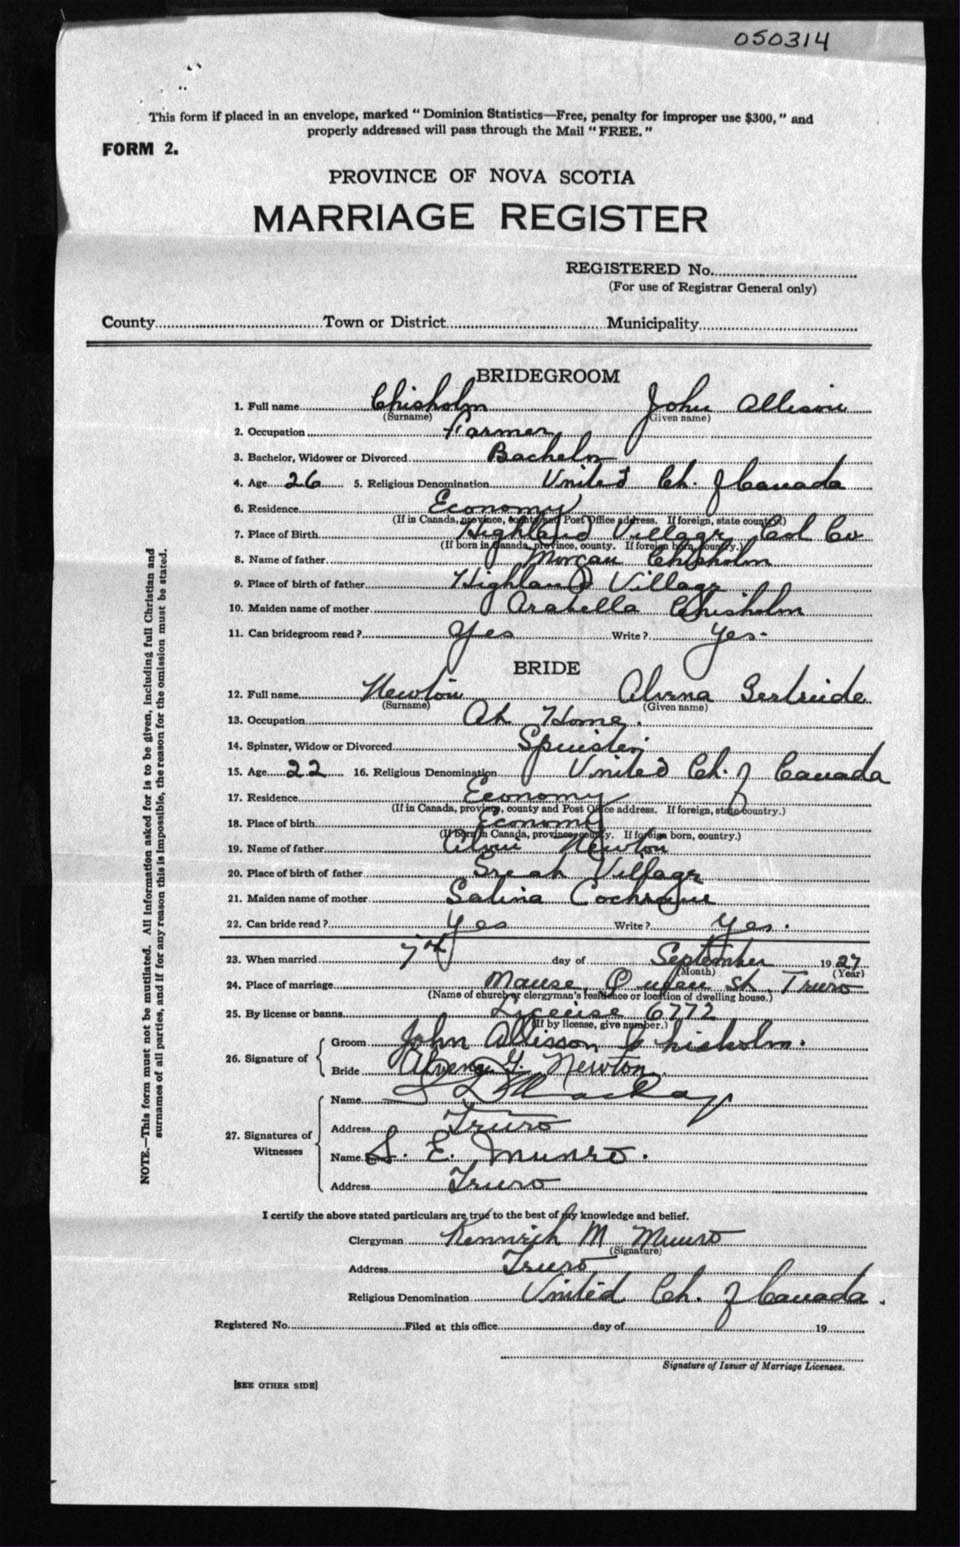 050314
This form if placed in an envelope, marked "Dominion Statistics—Free, penalty for improper use $300," and
properly addressed will pass through the Mail "FREE."
FORM 2.
PROVINCE OF NOVA SCOTIA
MARRIAGE REGISTER
REGISTERED No.
(For use of Registrar General only)
County Town or District Municipality
BRIDEGROOM
1. Full name Chisholm John Allison
(Surname) (Given name)
2. Occupation Farmer
3. Bachelor, Widower or Divorced Bachelor
4. Age 26 5. Religious Denomination United Ch. of Canada
6. Residence Economy
(If in Canada, province, county and Post Office address. If foreign, state country.)
7. Place of Birth Highland Village Col Co
(If born in Canada, province, county. If foreign born, country.)
8. Name of father Morgan Chisholm
9. Place of birth of father Highland Village
10. Maiden name of mother Arabella Chisholm
11. Can bridegroom read? Yes Write? Yes.
BRIDE
12. Full name Newton Alvena Gertrude
(Surname) (Given name)
13. Occupation At Home.
14. Spinster, Widow or Divorced Spinster
15. Age 22 16. Religious Denomination United Ch. of Canada
17. Residence Economy
(If in Canada, province, county and Post Office address. If foreign, state country.)
18. Place of birth Economy
(If born in Canada, province, county. If foreign born, country.)
19. Name of father Newton
20. Place of birth of father Great Village
21. Maiden name of mother Salina Cochrane
22. Can bride read? Yes Write? Yes.
23. When married 7th day of September 1927
(Month) (Year)
24. Place of marriage Manse, Queen St. Truro
(Name of church or clergyman's residence or location of dwelling house.)
25. By license or banns License 6772
(If by license, give number.)
26. Signature of Groom John Allisson Chisholm.
Bride Alvena G. Newton
27. Signatures of Witnesses Name MacKay
Address Truro
Name S. E. Munro.
Address Truro
I certify the above stated particulars are true to the best of my knowledge and belief.
Clergyman M Munro
(Signature)
Address Truro
Religious Denomination United Ch. of Canada.
Registered No. Filed at this office day of 19
Signature of Issuer of Marriage Licenses.
[SEE OTHER SIDE]
NOTE.—This form must not be mutilated. All information asked for is to be given, including full Christian and
surnames of all parties, and if for any reason this is impossible, the reason for the omission must be stated.